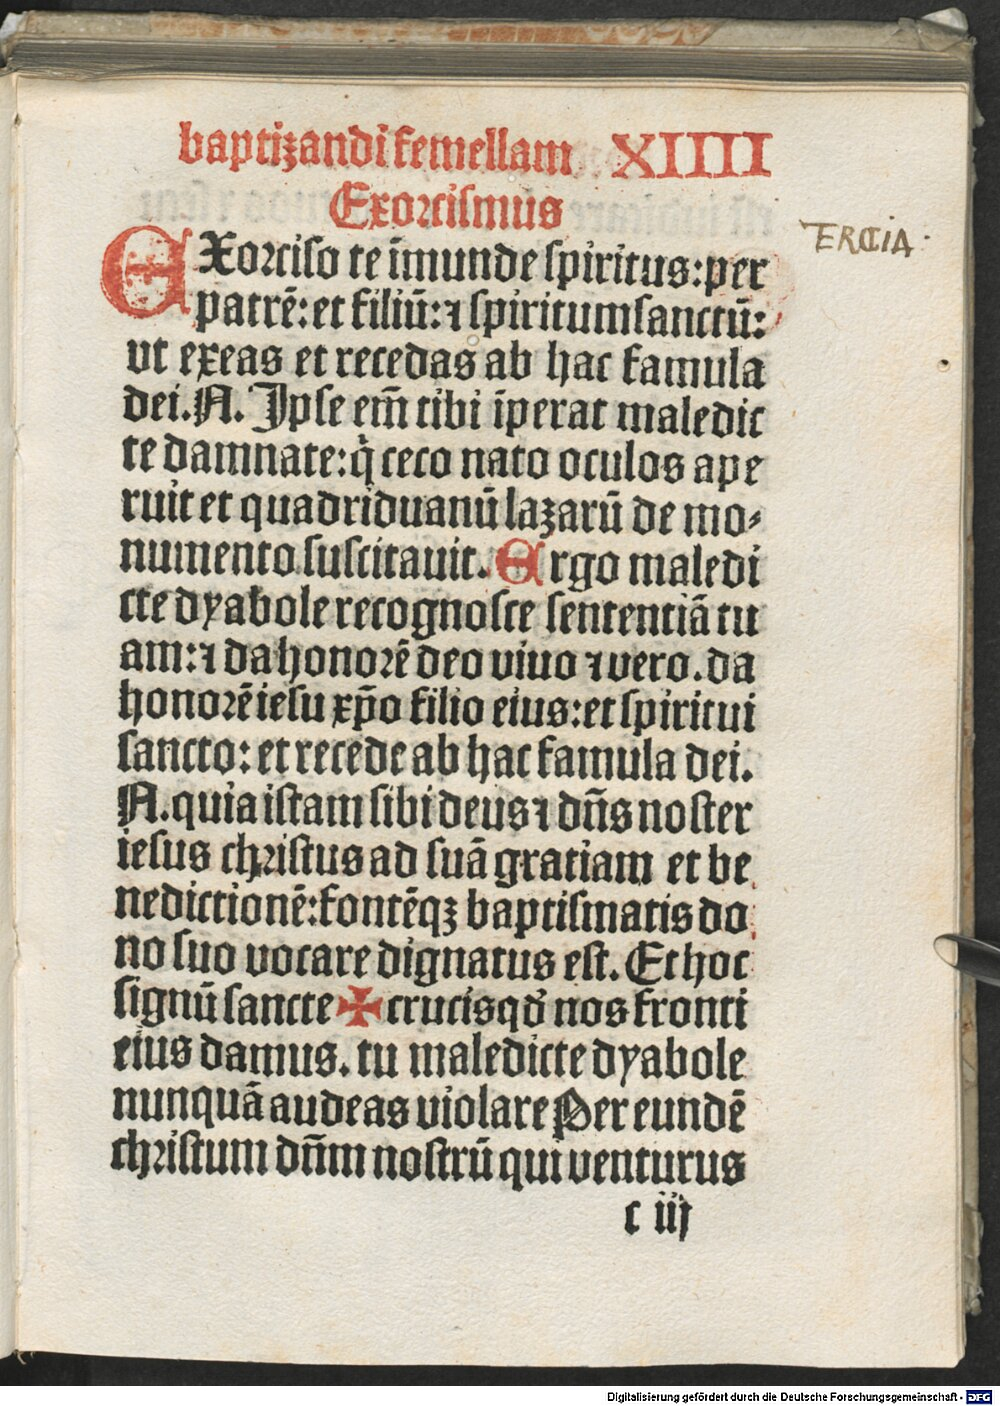 baptizandi femellam XIIII
Exorcismus
TERCIA.
EXorciſo te īmunde ſpiritus: per
patrē: et filiū: ⁊ ſpiritumſanctū:
vt exeas et recedas ab hac famula
dei. N. Ipſe em̄ tibi īperat maledic
te damnate: q̇ ceco nato oculos ape
ruit et quadriduanū lazarū de mo⸗
numento ſuſcitauit. Ergo maledi
cte dyabole recognoſce ſententiā tu
am: ⁊ da honorē deo viuo ⁊ vero. da
honorē ieſu xp̄o filio eius: et ſpiritui
ſancto: et recede ab hac famula dei.
N. quia iſtam ſibi deus ⁊ dn̄s noſter
ieſus chriſtus ad ſuā gratiam et be
nedictionē: fontēqꝫ baptiſmatis do
no ſuo vocare dignatus eſt. Et hoc
ſignū ſancte ✠ crucis qđ nos fronti
eius damus. tu maledicte dyabole
nunquā audeas violare Per eundē
chriſtum dn̄m noſtrū qui venturus
c iij
Digitalisierung gefördert durch die Deutsche Forschungsgemeinschaft - DFG